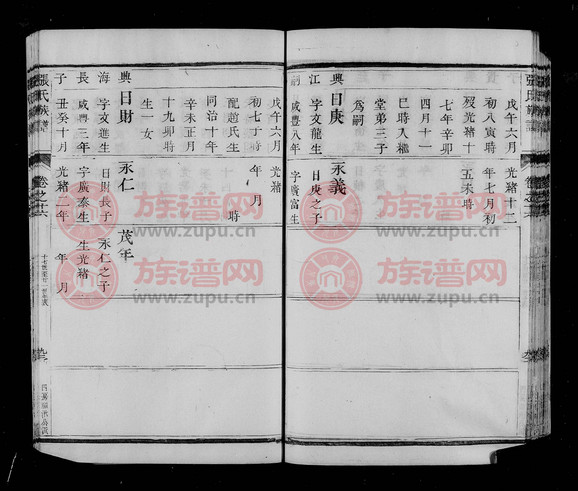 張氏族譜
卷之十六
興日庚
江 字文龍生
嗣 咸豐八年
戊午六月
初八寅時
歿光緒十
七年辛卯
四月十一
巳時入權
堂弟三子
為嗣
永義
日庚之子
字廣富生
光緒十二
年七月初
五未時
興日財
海 字文進生
長 咸豐三年
子 丑癸十月
戊午六月
初七丁時
配趙氏生
同治十年
辛未正月
十九卯時
生一女
永仁
日財長子
字廣泰生
光緒二年
光緒
年 月
時
茂年
永仁之子
生光緒
年 月
張氏族譜
卷之十六
族谱网
www.zupu.cn
族谱网
www.zupu.cn
族谱网
www.zupu.cn
族谱网
www.zupu.cn